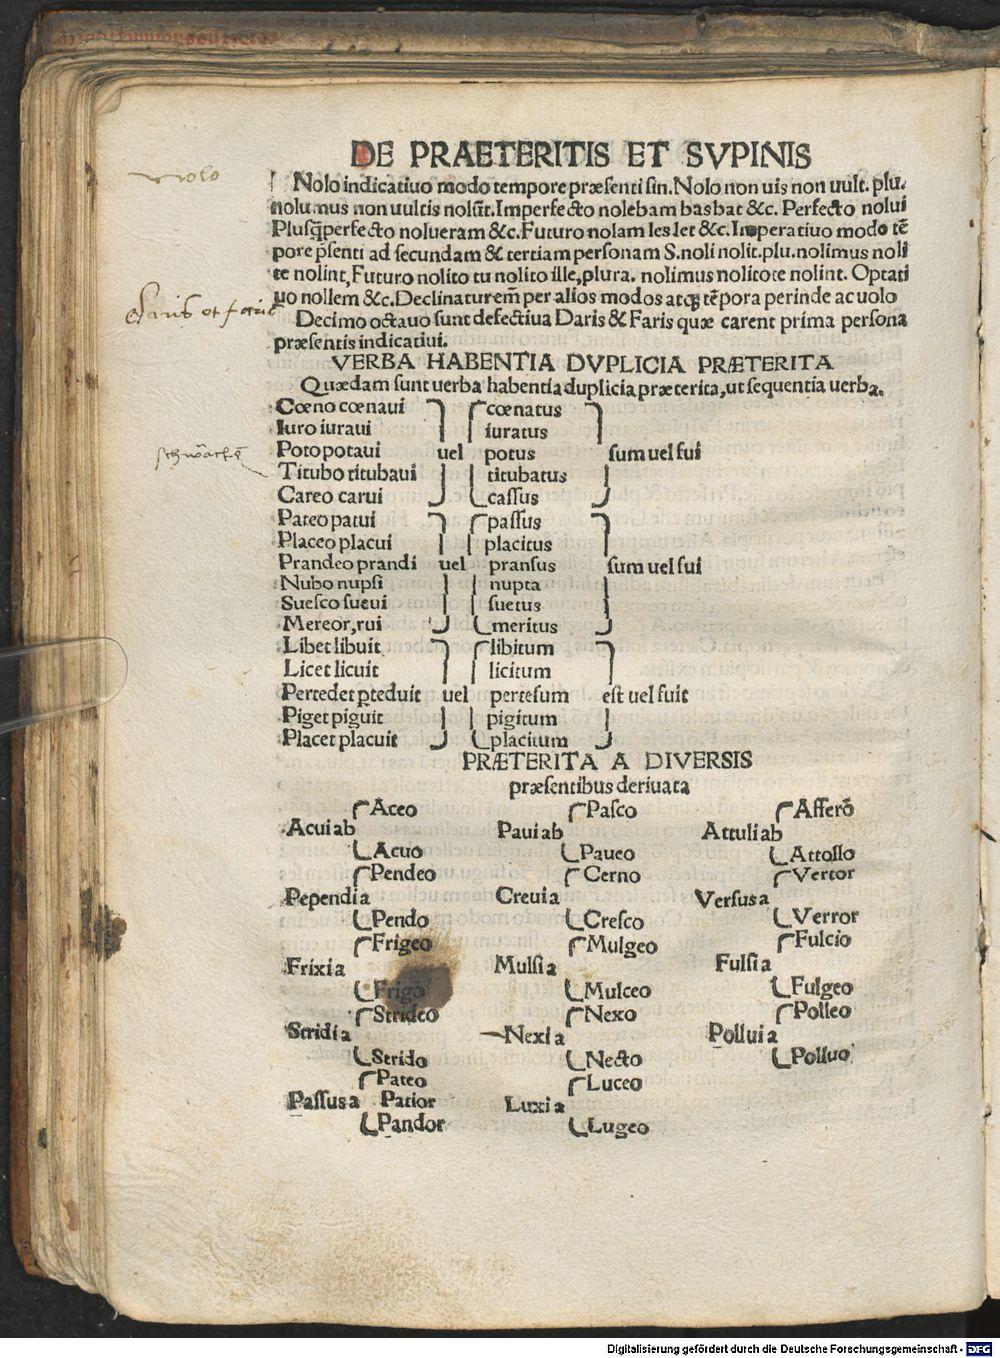 DE PRAETERITIS ET SVPINIS
Nolo indicatiuo modo tempore præsenti sin. Nolo non uis non uult. plu.
nolumus non uultis nolūt. Imperfecto nolebam bas bat &c. Perfecto nolui
Plusq̄perfecto nolueram &c. Futuro nolam les let &c. Imperatiuo modo tē
pore p̄senti ad secundam & tertiam personam S. noli nolit. plu. nolimus noli
te nolint, Futuro nolito tu nolito ille, plura. nolimus nolitote nolint. Optati
uo nollem &c. Declinatur em̄ per alios modos atq; tēpora perinde ac uolo
Decimo octauo sunt defectiua Daris & Faris quæ carent prima persona
præsentis indicatiui.
VERBA HABENTIA DVPLICIA PRÆTERITA
Quædam sunt uerba habentia duplicia præterita, ut sequentia uerba.
Cœno cœnaui cœnatus
Iuro iuraui iuratus
Poto potaui uel potus sum uel fui
Titubo titubaui titubatus
Careo carui cassus
Pateo patui passus
Placeo placui placitus
Prandeo prandi uel pransus sum uel fui
Nubo nupsi nupta
Suesco sueui suetus
Mereor, rui meritus
Libet libuit libitum
Licet licuit licitum
Pertedet p̱teduit uel pertesum est uel fuit
Piget piguit pigitum
Placet placuit placitum
PRÆTERITA A DIVERSIS
præsentibus deriuata
Aceo Pasco Afferō
Acui ab Paui ab Attuli ab
Acuo Paueo Attollo
Pendeo Cerno Vertor
Pependi a Creui a Versus a
Pendo Cresco Verror
Frigeo Mulgeo Fulcio
Frixi a Mulsi a Fulsi a
Frigo Mulceo Fulgeo
Strideo Nexo Polleo
Stridi a Nexi a Pollui a
Strido Necto Polluo
Pateo Luceo
Passus a Patior Luxi a
Pandor Lugeo
uolo
Daris et faris
Digitalisierung gefördert durch die Deutsche Forschungsgemeinschaft - DFG